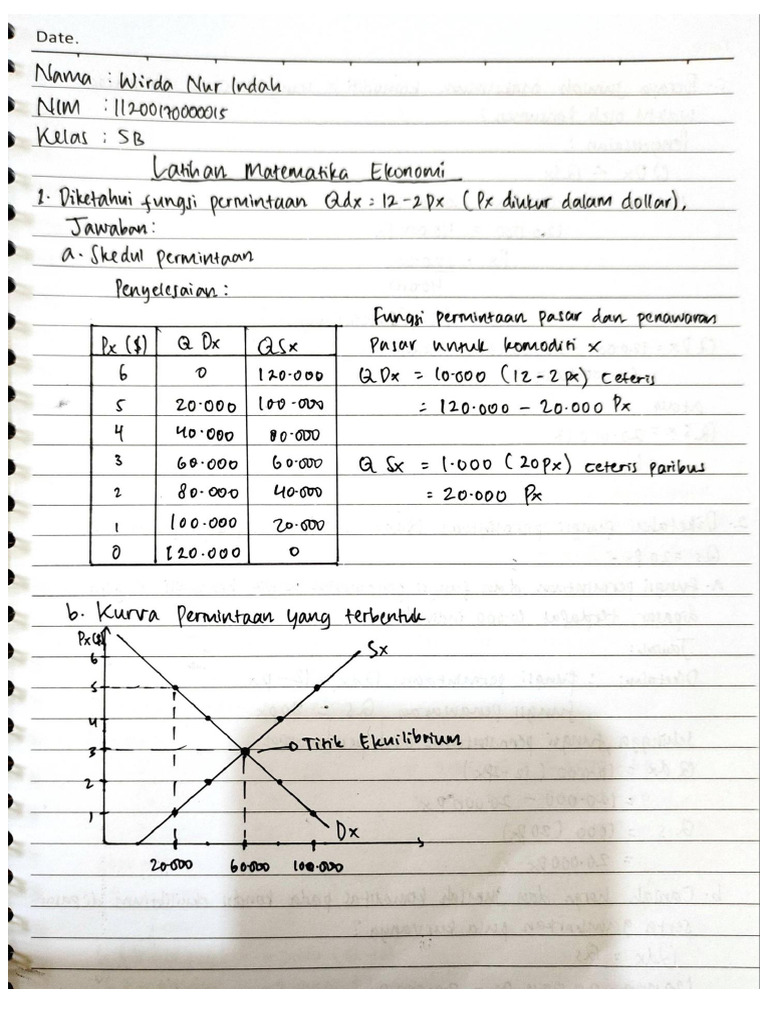 Date.
Nama : Wirda Nur Indah
NIM : 11200170000015
Kelas : 5B
Latihan Matematika Ekonomi
1. Diketahui fungsi permintaan Qdx = 12-2Px (Px diukur dalam dollar),
Jawaban:
a. Skedul permintaan
Penyelesaian :
Px ($) Q Dx QSx
6 0 120.000
5 20.000 100.000
4 40.000 80.000
3 60.000 60.000
2 80.000 40.000
1 100.000 20.000
0 120.000 0
Fungsi permintaan pasar dan penawaran
pasar untuk komoditi x
Q Dx = 10.000 (12-2px) ceteris
= 120.000 - 20.000 Px
Q Sx = 1.000 (20px) ceteris paribus
= 20.000 Px
b. Kurva Permintaan yang terbentuk
Px($)
6
5
4
3
2
1
Sx
Titik Ekuilibrium
Dx
20.000 60.000 100.000